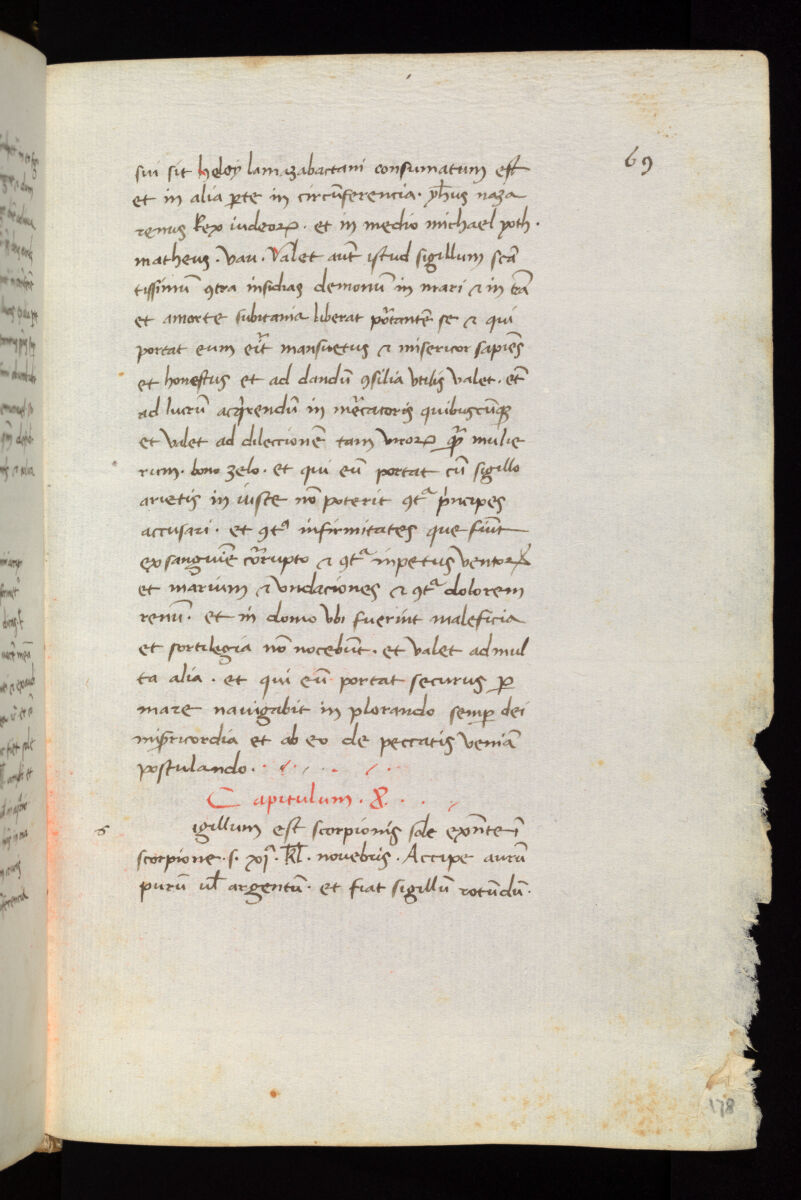 69
sui sit heloy lamazabactani consumatum est
et in alia p̱te in circūferencia · yh̄us naza
renus Rex iudeoꝝ · et in medio michael yoth ·
matheus · vau · Valet aut̄ istud sigillum scā
tissimū ꝯtra insidias demonū in mari ⁊ in t̄ra
et a morte subitania liberat portantē se ⁊ qui
portat eum erit mansuetus ⁊ misericor sapiēs
et honestus et ad dandū ꝯsilia vtilis valet · et
ad lucrū acq̄rendū in m̄catoris quibuscūqꝫ
et valet ad dileccionē tam viroꝝ quā mulie
rum · bono zelo · et qui eū portat cū sigillo
arietis in iuste nō poterit ꝯtᵃ principes
accusari · et ꝯtᵃ infirmitates que fiūt
ex sanguīe corrupto ⁊ ꝯtᵃ inpetus ventoꝝ
et marium ⁊ vndaciones ⁊ ꝯtᵃ dolorem
renū · et in domo vbi fuerint maleficia
et sortilegia nō nocebūt · et valet ad mul
ta alia · et qui eū portat securus ꝑ
mare nauigabit in plorando semꝑ dei
mīsericordia et ab eo de peccatis veniā
postulando ·
Capitulum · 8 ·
s igillum est scorpionis sole exn̄te ī
scorpione · s · xjᵃ · kl̄ · novēbris · Accipe aurū
purū ul̄ argentū · et fiat sigillū rotūdū ·
178